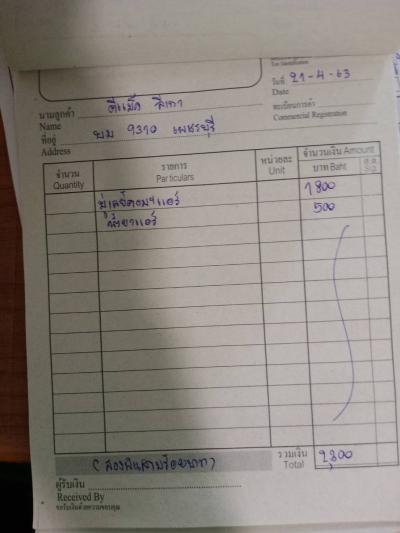 Tax Identification
วันที่ 21-4-63
Date
ทะเบียนการค้า
Commercial Registration
นามลูกค้า ดีแม็ค สีเทา
Name
ที่อยู่ ผม 9370 เพชรบุรี
Address
จำนวน รายการ หน่วยละ จำนวนเงิน Amount
Quantity Particulars Unit บาท Baht ส.ต. Stg.
มู่เลย์คอมฯแอร์ 1800
น้ำยาแอร์ 500
(สองพันสามร้อยบาท) รวมเงิน 2,300
Total
ผู้รับเงิน
Received By
ขอรับเงินด้วยความขอบคุณ